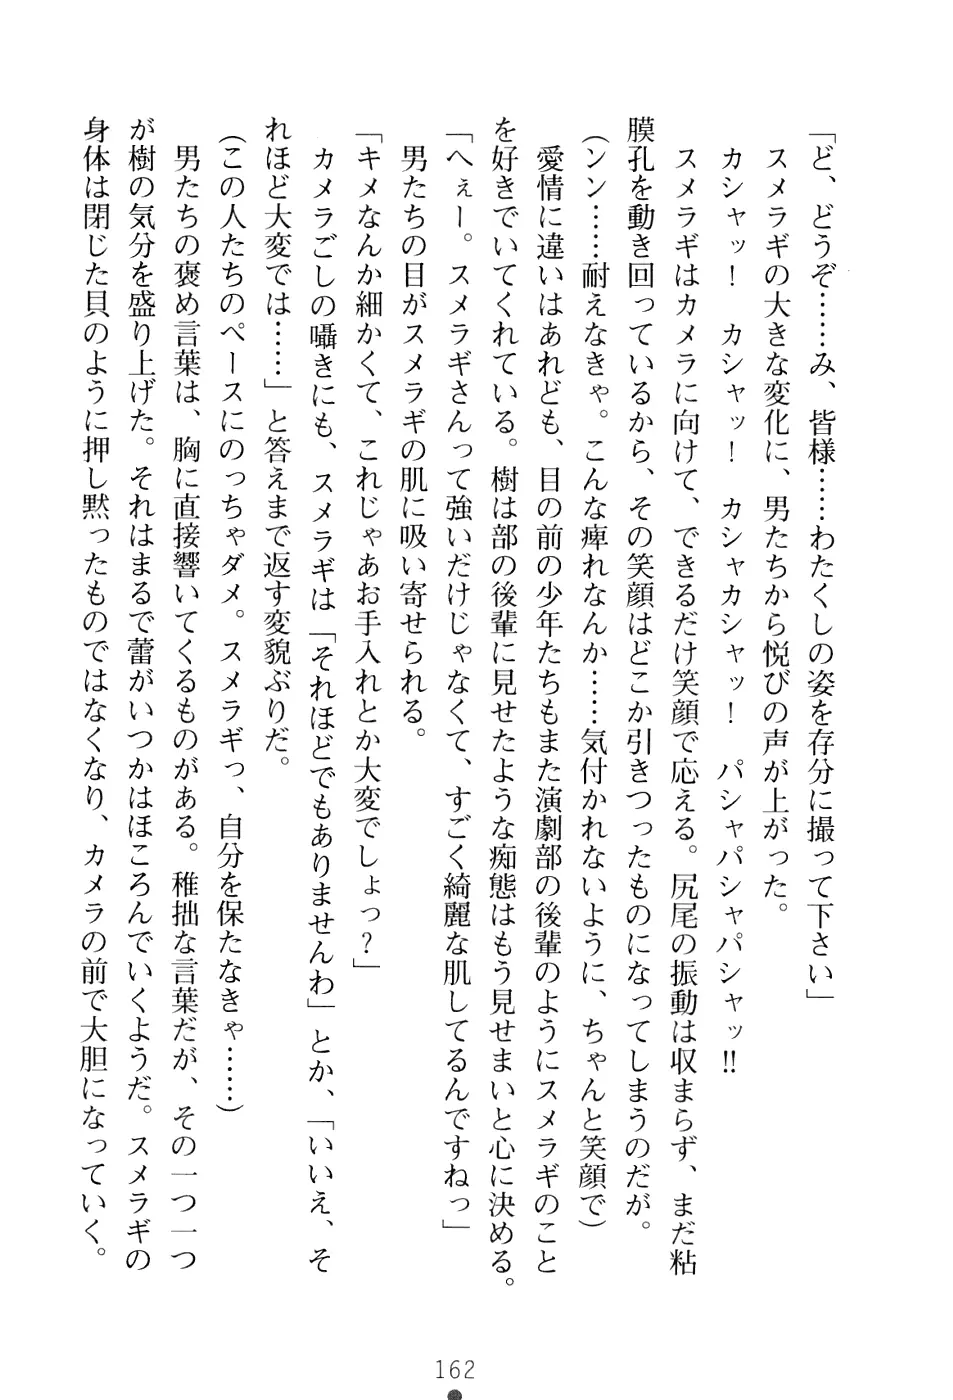 「ど、どうぞ……み、皆様……わたくしの姿を存分に撮って下さい」
スメラギの大きな変化に、男たちから悦びの声が上がった。
カシャッ！　カシャッ！　カシャカシャッ！　パシャパシャパシャッ!!
スメラギはカメラに向けて、できるだけ笑顔で応える。尻尾の振動は収まらず、まだ粘
膜孔を動き回っているから、その笑顔はどこか引きつったものになってしまうのだが。
（ンン……耐えなきゃ。こんな痺れなんか……気付かれないように、ちゃんと笑顔で）
愛情に違いはあれども、目の前の少年たちもまた演劇部の後輩のようにスメラギのこと
を好きでいてくれている。樹は部の後輩に見せたような痴態はもう見せまいと心に決める。
「へぇー。スメラギさんって強いだけじゃなくて、すごく綺麗な肌してるんですねっ」
男たちの目がスメラギの肌に吸い寄せられる。
「キメなんか細かくて、これじゃあお手入れとか大変でしょっ？」
カメラごしの囁きにも、スメラギは「それほどでもありませんわ」とか、「いいえ、そ
れほど大変では……」と答えまで返す変貌ぶりだ。
（この人たちのペースにのっちゃダメ。スメラギっ、自分を保たなきゃ……）
男たちの褒め言葉は、胸に直接響いてくるものがある。稚拙な言葉だが、その一つ一つ
が樹の気分を盛り上げた。それはまるで蕾がいつかはほころんでいくようだ。スメラギの
身体は閉じた貝のように押し黙ったものではなくなり、カメラの前で大胆になっていく。
162